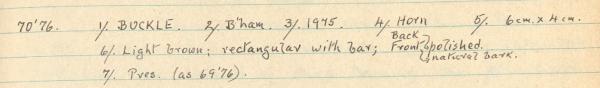 70'76. 1/. BUCKLE. 2/. B'ham. 3/. 1975. 4/. Horn 5/. 6cm. x 4cm.
6/. Light brown; rectangular with bar; Back } polished.
Front } natural bark.
7/. Pres. (as 69'76).